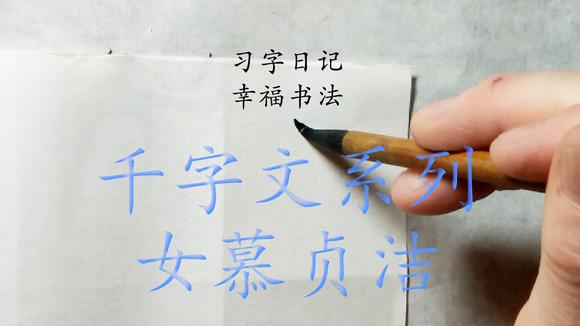 习字日记
幸福书法
千字文系列
女慕贞洁